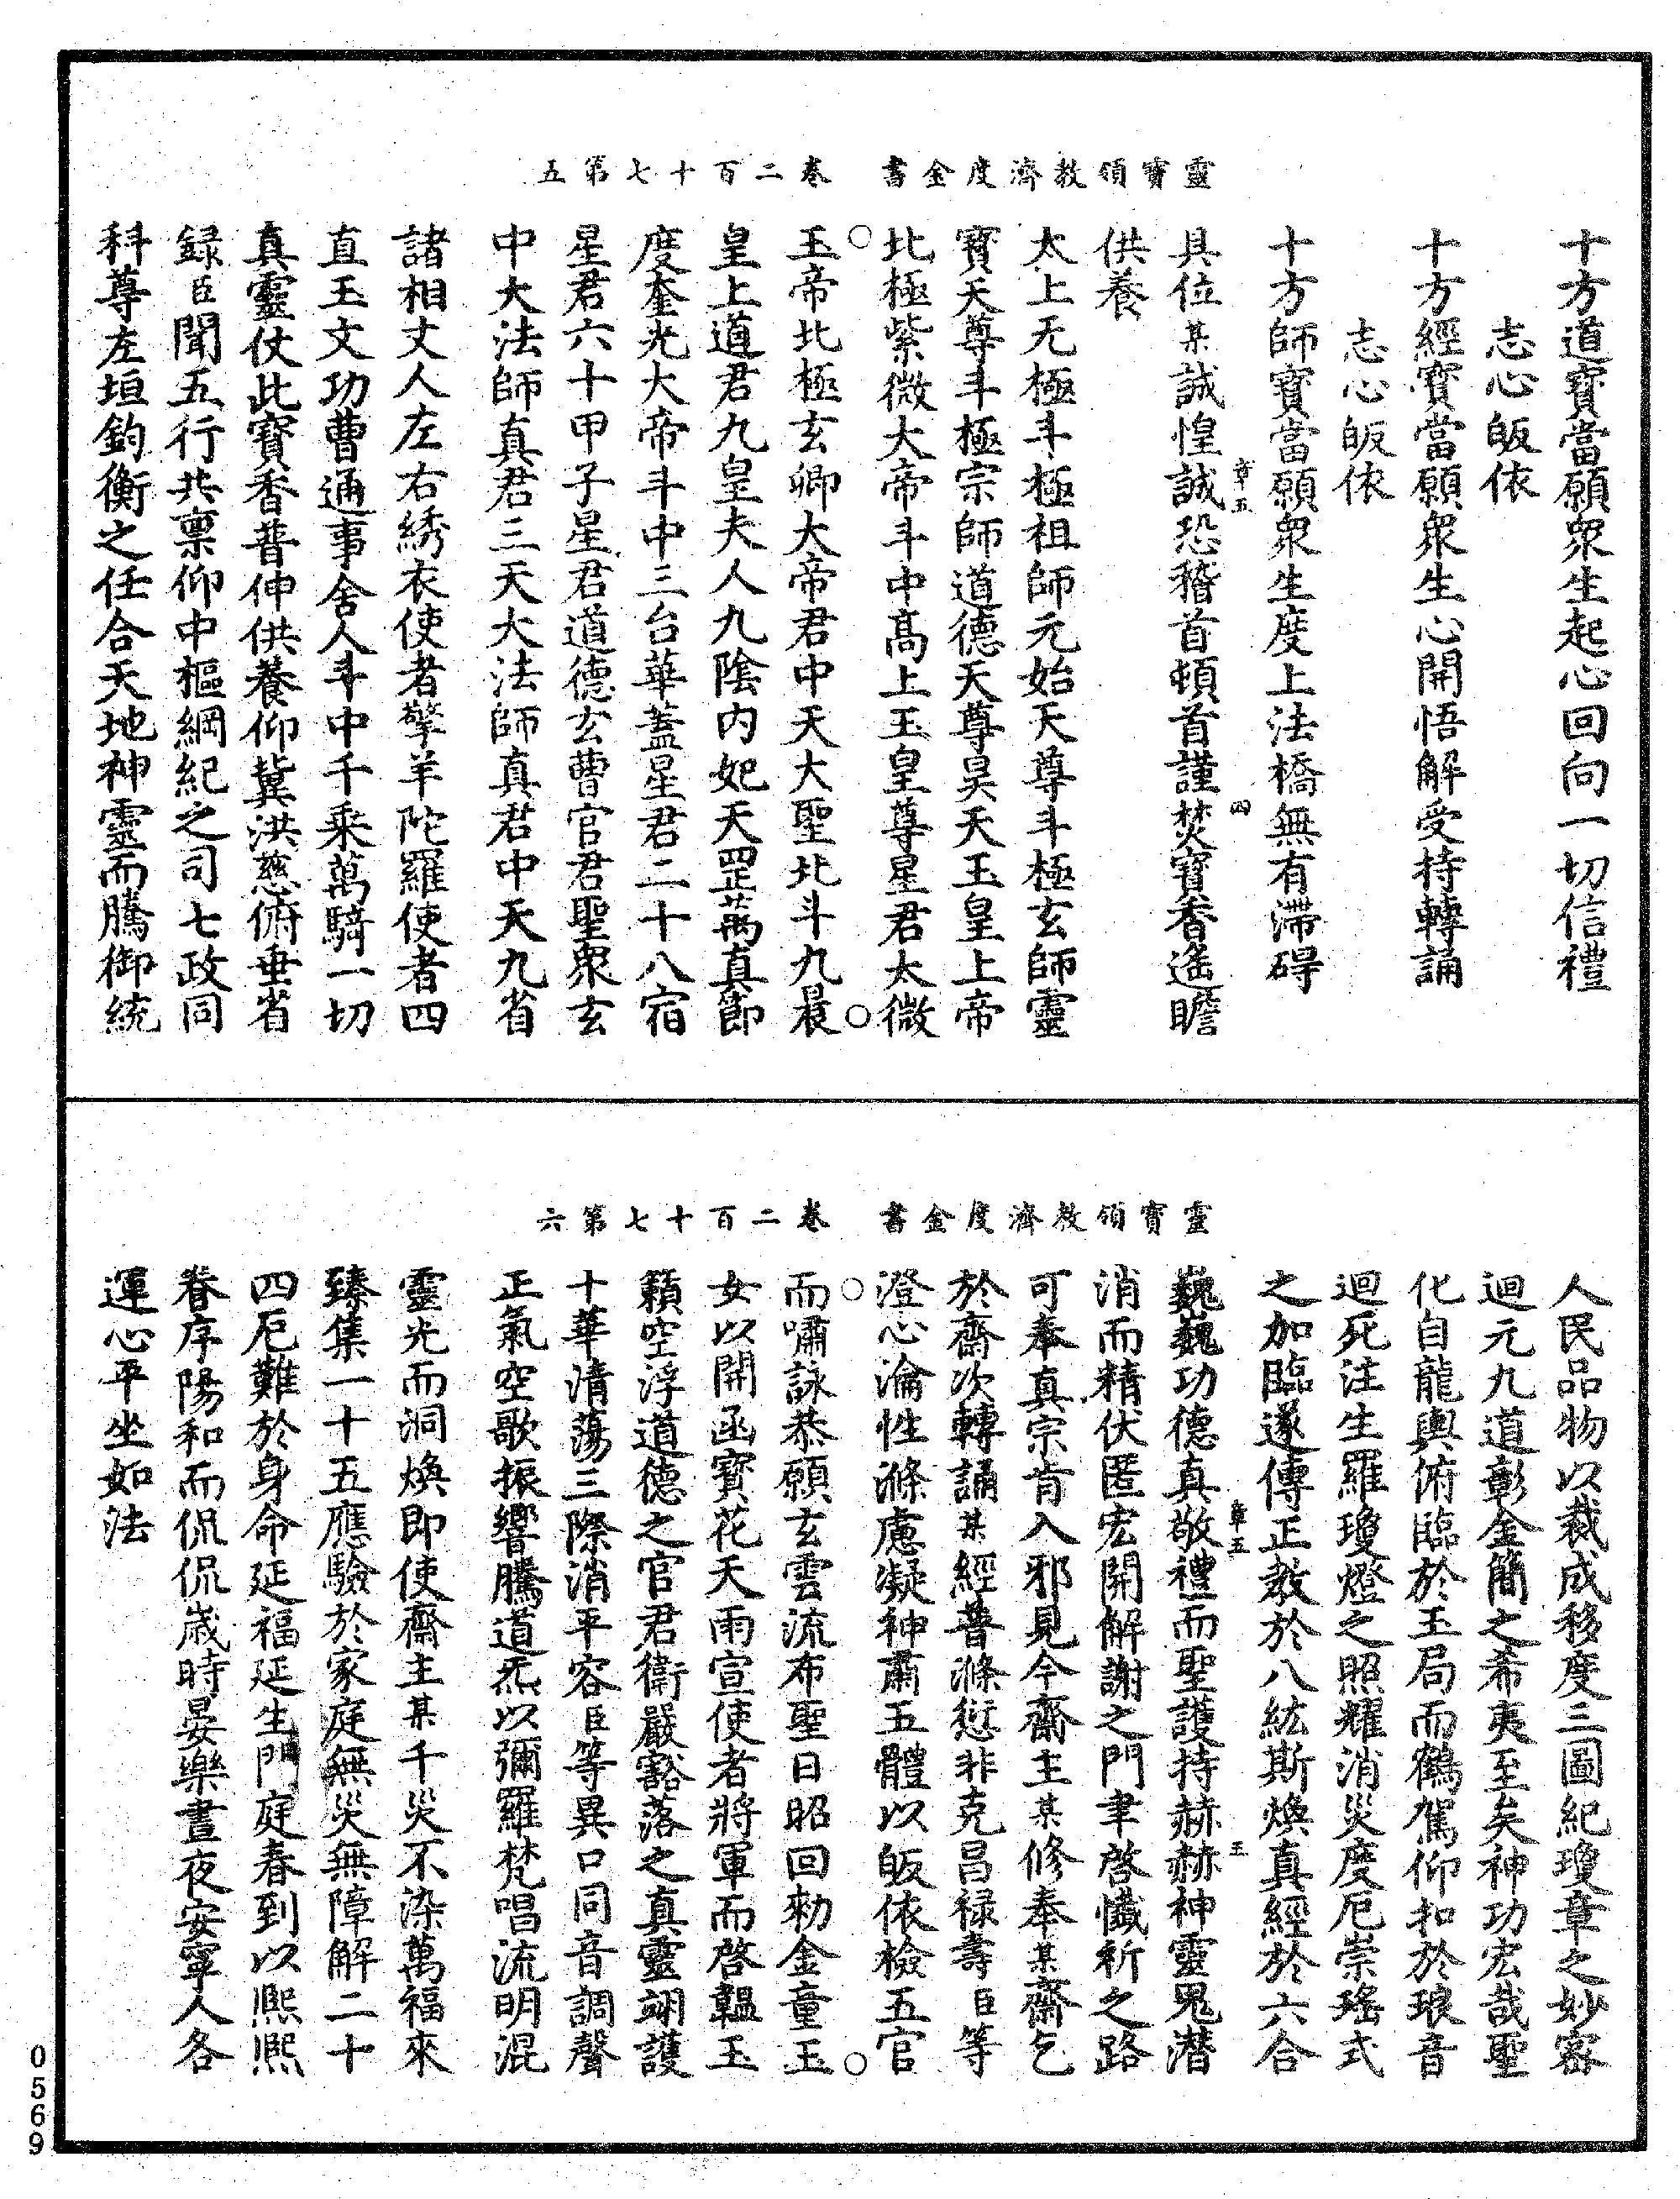 靈寶領教濟度金書　卷二百七十第五
十方道寶當願眾生起心回向一切信禮
志心皈依
十方經寶當願眾生心開悟解受持轉誦
志心皈依
十方師寶當願眾生度上法橋無有滯碍
具位某誠惶誠恐稽首頓首謹焚寶香遙瞻
章五
四
供養
太上无極斗極祖師元始天尊斗極玄師靈
寶天尊斗極宗師道德天尊昊天玉皇上帝
北極紫微大帝斗中高上玉皇尊星君太微
玉帝北極玄卿大帝君中天大聖北斗九晨
皇上道君九皇夫人九陰内妃天罡萬真節
度奎光大帝斗中三台華蓋星君二十八宿
星君六十甲子星君道德玄曹官君聖眾玄
中大法師真君三天大法師真君中天九省
諸相丈人左右綉衣使者擎羊陀羅使者四
直玉文功曹通事舍人斗中千乘萬騎一切
真靈仗此寶香普伸供養仰冀洪慈俯垂省
録臣聞五行共禀仰中樞綱紀之司七政同
科尊左垣鈞衡之任合天地神靈而騰御統
靈寶領教濟度金書　卷二百七十第六
人民品物以裁成移度三圖紀瓊章之妙密
迴元九道彰金簡之希夷至矣神功宏哉聖
化自龍輿俯臨於玉局而鶴駕仰扣於琅音
迴死注生羅瓊燈之照耀消災度厄崇瑤式
之加臨遂傳正教於八紘斯煥真經於六合
巍巍功德真敬禮而聖護持赫赫神靈鬼潜
章五
王
消而精伏匿宏開解謝之門聿啓懺祈之路
可奉真宗肯入邪見今齋主某修奉某齋乞
於齋次轉誦某經普滌愆非克昌禄壽臣等
澄心瀹性滌慮凝神肅五體以皈依檢五官
而嘯詠恭願玄雲流布聖日昭回勑金童玉
女以開函寶花天雨宣使者將軍而啓韞玉
籟空浮道德之官君衛嚴豁落之真靈翊護
十華清蕩三際消平容臣等異口同音調聲
正氣空歌振響騰道炁以彌羅梵唱流明混
靈光而洞煥即使齋主某千災不染萬福來
臻集一十五應驗於家庭無災無障解二十
四厄難於身命延福延生門庭春到以熙熙
眷序陽和而侃侃歲時晏樂晝夜安寧人各
運心平坐如法
0569